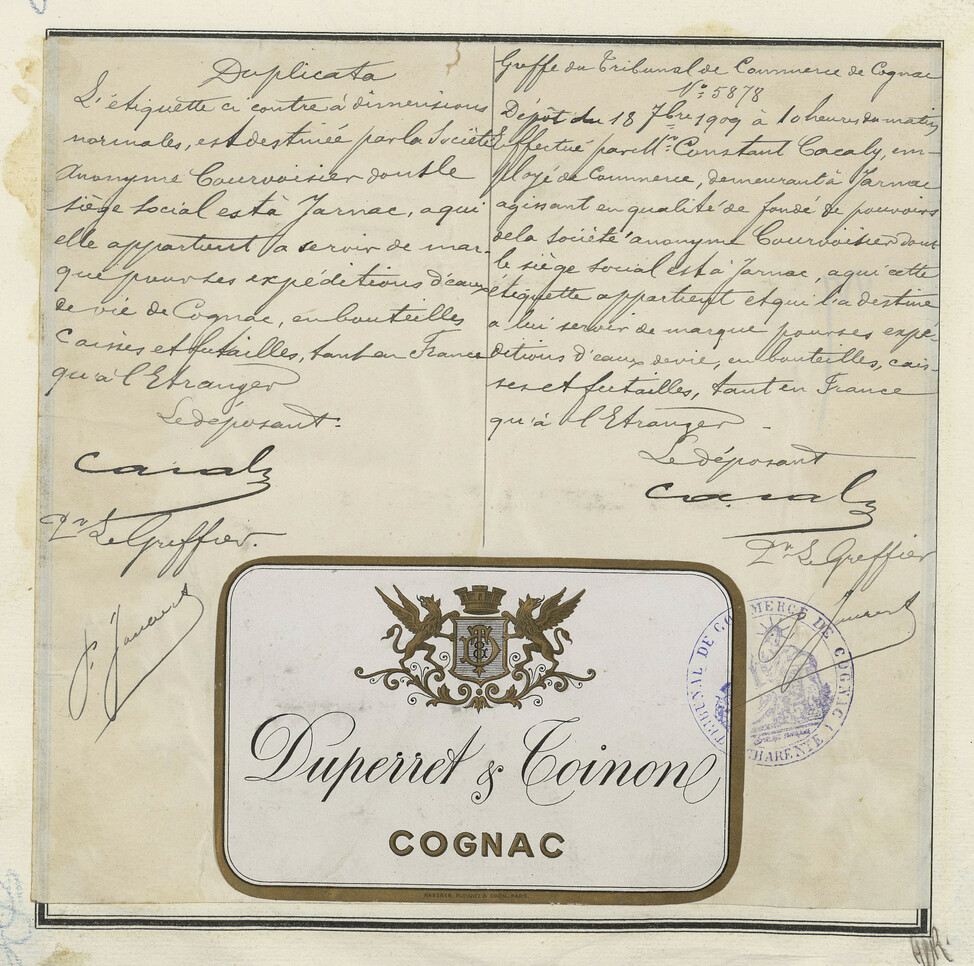 Duplicata
L'étiquette ci contre à dimensions
normales, est destinée par la Société
Anonyme Courvoisier dont le
siège social est à Jarnac, a qui
elle appartient a servir de mar-
que pour ses expéditions d'eaux
de vie de Cognac, en bouteilles
Caisses et futailles, tant en France
qu'à l'Etranger
Le déposant.
Cacaly
Pr Le Greffier.
Greffe du Tribunal de Commerce de Cognac
No. 5878
Dépôt du 18 7bre 1909 à 10 heures du matin
Effectué par Mr. Constant Cacaly, em-
ployé de Commerce, demeurant à Jarnac
agissant en qualité de fondé de pouvoirs
de la Société anonyme Courvoisier dont
le siège social est à Jarnac, a qui cette
étiquette appartient et qui l'a destine
a lui servir de marque pour ses expé-
ditions d'eaux de vie, en bouteilles, cais-
ses et futailles, tant en France
qu'à l'Etranger -
Le déposant
Cacaly
Pr Le Greffier
TRIBUNAL DE COMMERCE DE COGNAC
CHARENTE
Duperret & Coinon
COGNAC